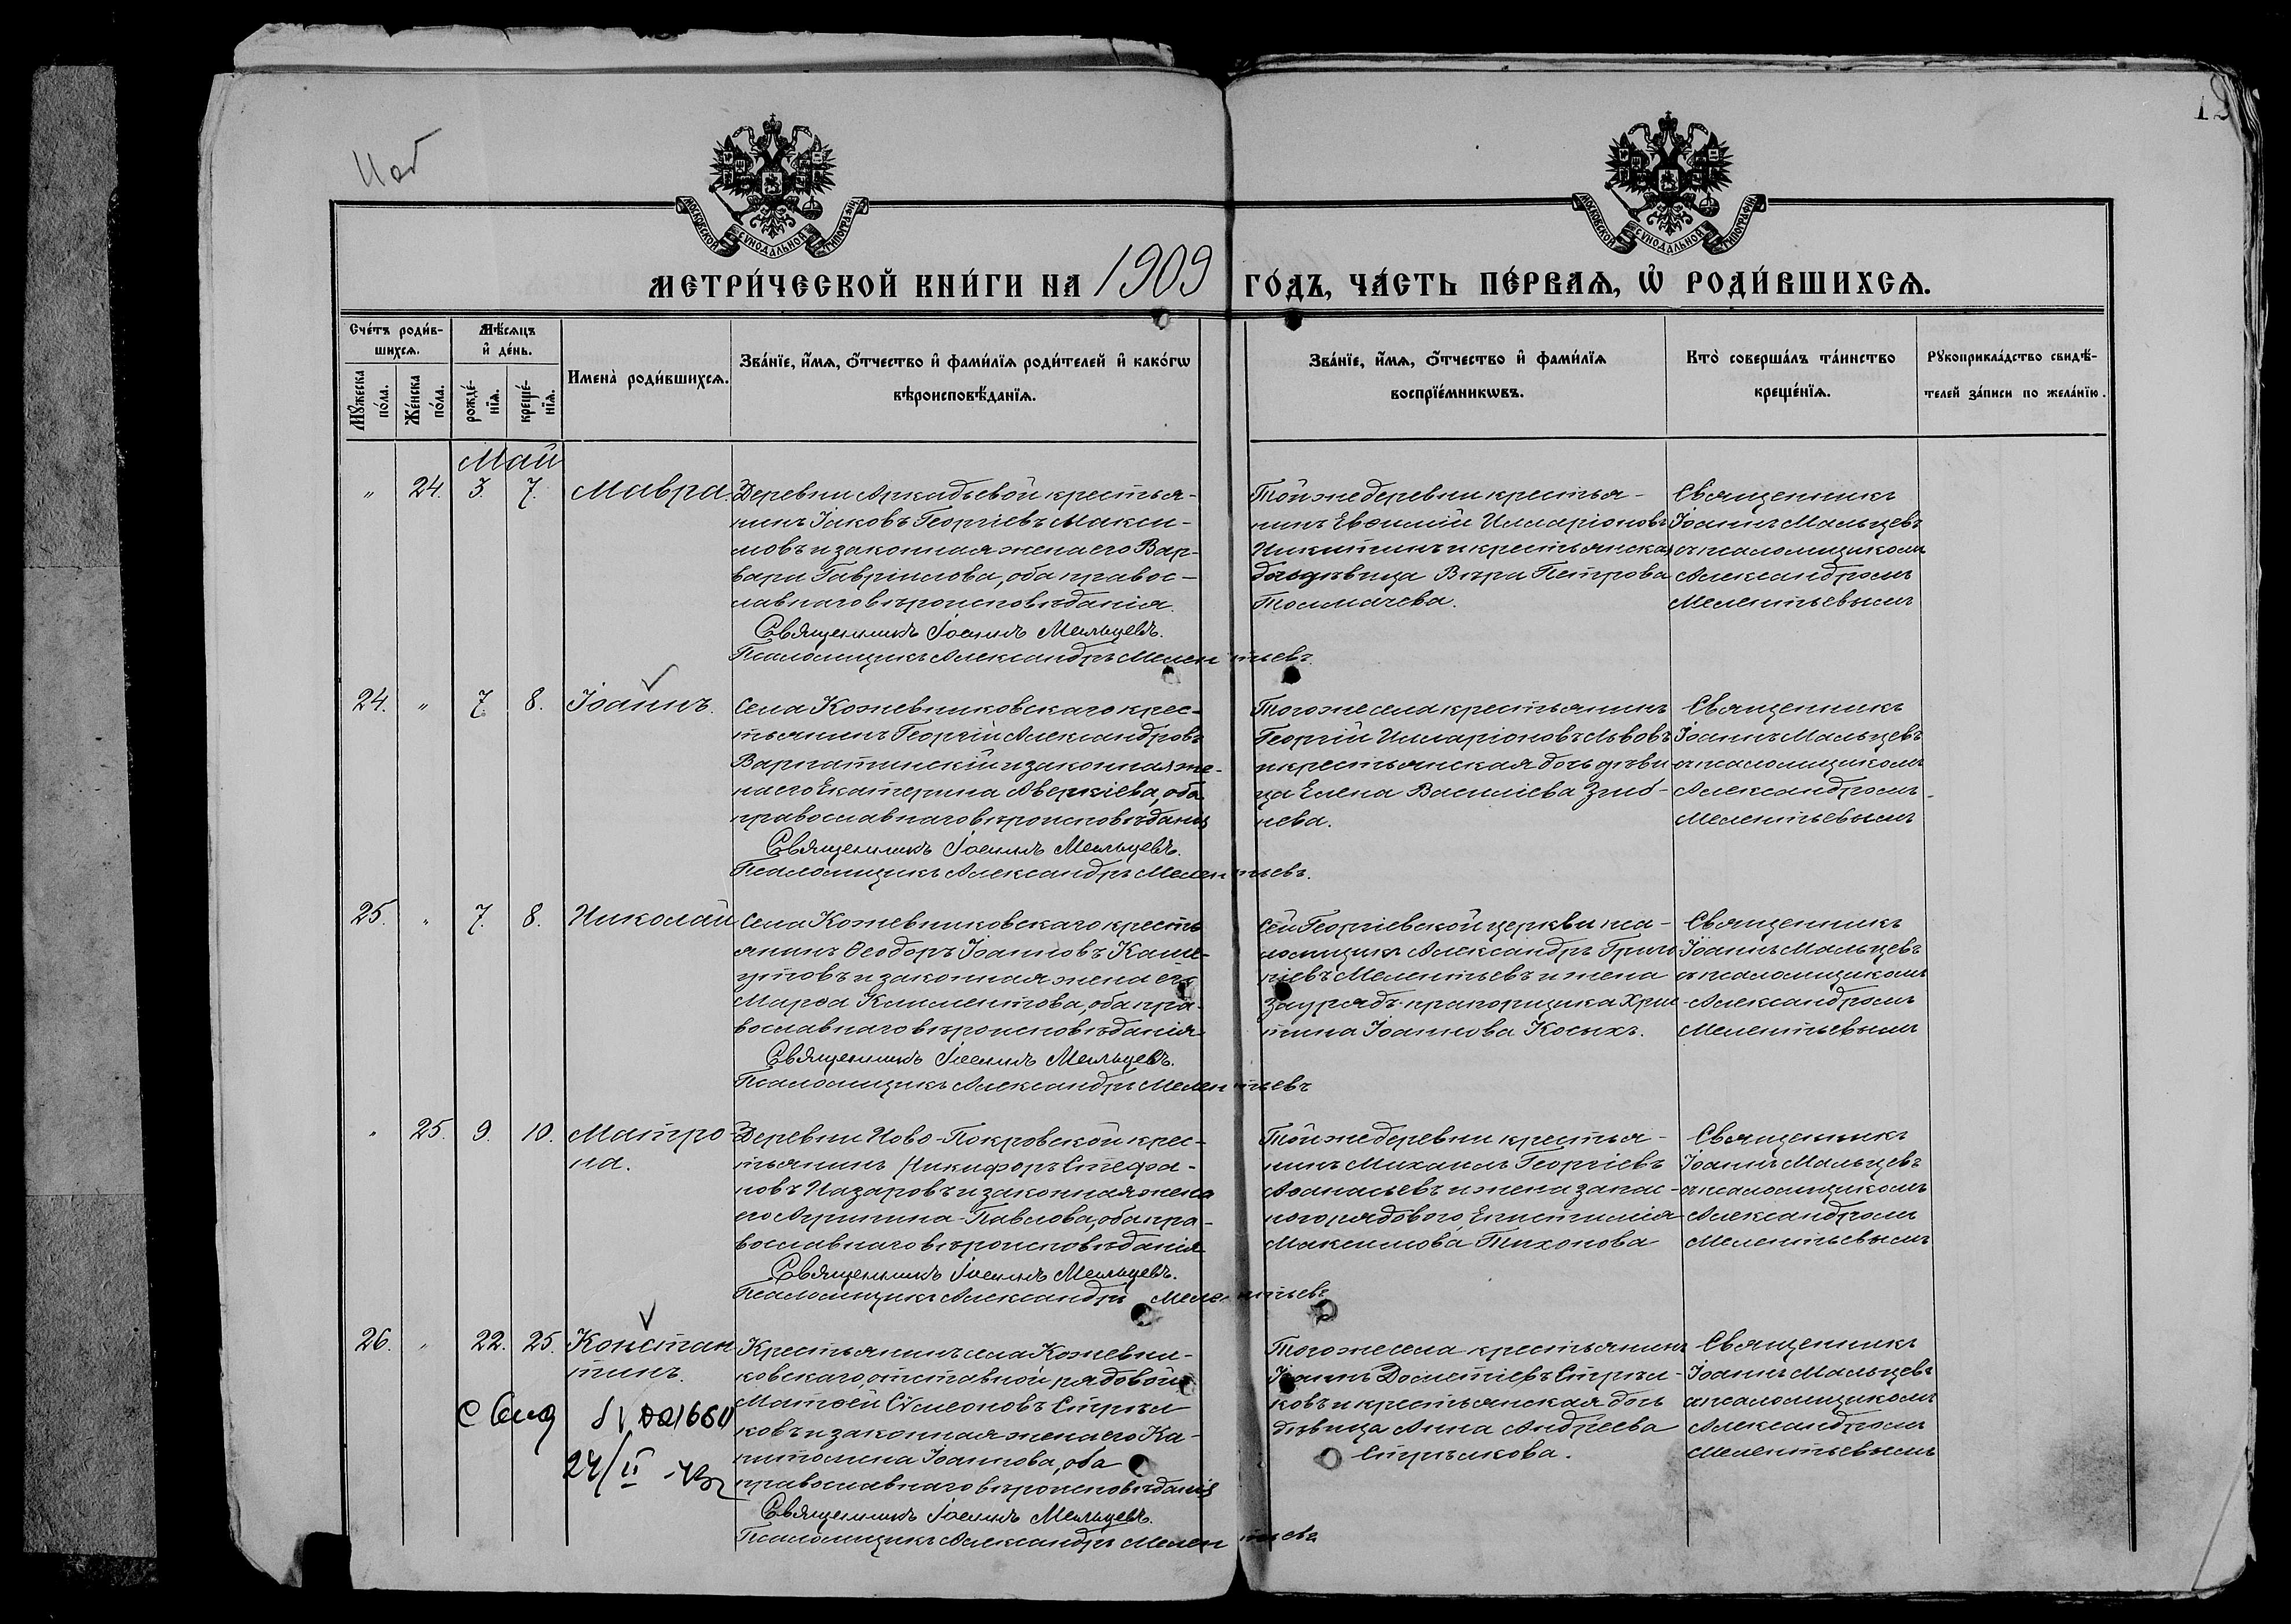 12
МОСКОВСКОЙ СѴНОДАЛЬНОЙ ТИПОГРАФІИ
МОСКОВСКОЙ СѴНОДАЛЬНОЙ ТИПОГРАФІИ
МЕТРИ́ЧЕСКОЙ КНИ́ГИ НА 1909 ГО́ДЪ, ЧА́СТЬ ПЕ́РВАѦ, Ѡ҆ РОДИ́ВШИХСѦ.
Сче́тъ роди́в-
шихсѧ.
Мѣ́сѧцъ
и҆ де́нь.
Имена̀ роди́вшихсѧ.
Зва́нїе, и҆́мѧ, ѻ҆́тчество и҆ фами́лїѧ роди́телей и҆ како́гѡ
вѣроисповѣ́данїѧ.
Зва́нїе, и҆́мѧ, ѻ҆́тчество и҆ фами́лїѧ
воспрїе́мникѡвъ.
Кто̀ соверша́лъ та́инство
креще́нїѧ.
Рꙋкоприкла́дство свидѣ́-
телей за́писи по жела́нїю.
Мꙋ́жеска
по́ла.
Же́нска
по́ла.
рожде́-
нїѧ.
креще́-
нїѧ.
Май
" 24. 3. 7. Мавра.
Деревни Аркадьевой крестья-
нинъ Іаковъ Георгіевъ Макси-
мовъ и законная жена его Вар-
вара Гавріилова, оба правос-
лавнаго вѣроисповѣданія.
Священникъ Іоаннъ Мальцевъ.
Псаломщикъ Александръ Мелентьевъ.
Той же деревни крестья-
нинъ Евѳимій Илларіоновъ
Никитинъ и крестьянская
дочь дѣвица Вѣра Петрова
Толмачева.
Священникъ
Іоаннъ Мальцевъ
съ псаломщикомъ
Александромъ
Мелентьевымъ
24. " 7. 8. Іоаннъ.
Села Кожевниковскаго крес-
тьянинъ Георгій Александровъ
Варпатинскій и законная же-
на его Екатерина Аверкіева, оба
православнаго вѣроисповѣданія
Священникъ Іоаннъ Мальцевъ.
Псаломщикъ Александръ Мелентьевъ.
Того же села крестьянинъ
Георгій Илларіоновъ Львовъ
и крестьянская дочь дѣви-
ца Елена Василіева Зиб-
нева.
Священникъ
Іоаннъ Мальцевъ
съ псаломщикомъ
Александромъ
Мелентьевымъ
25. " 7. 8. Николай
Села Кожевниковскаго кресть
янинъ Ѳеодоръ Іоанновъ
и законная жена его
Марѳа Климентова, оба пра-
вославнаго вѣроисповѣданія
Священникъ Іоаннъ Мальцевъ.
Псаломщикъ Александръ Мелентьевъ
Сей Георгіевской церкви пса-
ломщикъ Александръ Григо
ріевъ Мелентьевъ и жена
Зауряд-прапорщика Хрис
тина Іоаннова Косыхъ.
Священникъ
Іоаннъ Мальцевъ
съ псаломщикомъ
Александромъ
Мелентьевымъ
" 25. 9. 10. Матро-
на.
Деревни Ново-Покровской крес-
тьянинъ Никифоръ Стефа-
новъ Назаровъ и законная жена
его Агрипина Павлова, оба пра-
вославнаго вѣроисповѣданія
Священникъ Іоаннъ Мальцевъ.
Псаломщикъ Александръ Мелентьевъ
Той же деревни крестья-
нинъ Михаилъ Георгіевъ
Аѳанасьевъ и жена запас-
ного рядового Епистимія
Максимова Тихонова
Священникъ
Іоаннъ Мальцевъ
съ псаломщикомъ
Александромъ
Мелентьевымъ
26. " 22. 25. Констан
тинъ.
Крестьянинъ села Кожевни-
ковскаго, отставной рядовой
Матѳей Сѵмеоновъ Стрѣл
ковъ и законная жена его Ка-
питолина Іоаннова, оба
православнаго вѣроисповѣданія
Священникъ Іоаннъ Мальцевъ.
Псаломщикъ Александръ Мелентьевъ
Того же села крестьянинъ
Іоаннъ Дометіевъ Стрѣл-
ковъ и крестьянская дочь
дѣвица Анна Андреева
Стрѣлкова.
Священникъ
Іоаннъ Мальцевъ
съ псаломщикомъ
Александромъ
Мелентьевымъ
24/II